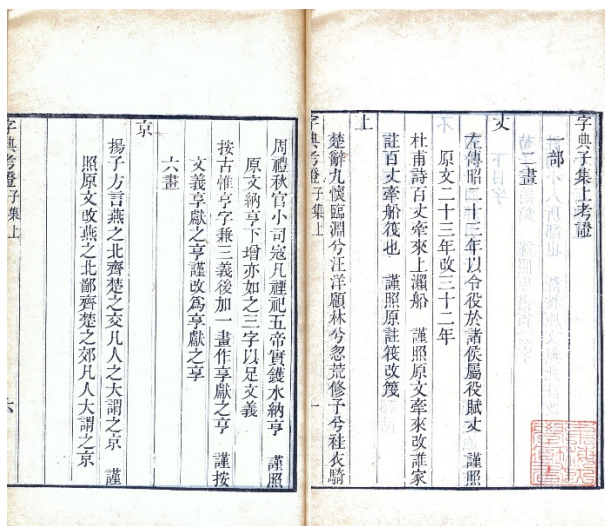 字典子集上考證
一部
二畫
丈
左傳昭二十三年以令役於諸侯屬役賦丈　謹照
原文二十三年改三十二年
杜甫詩百丈牽來上瀨船　謹照原文牽來改誰家
註百丈牽船筏也　謹照原註筏改篾
上
楚辭九懷臨淵兮汪洋顧林兮忽荒修予兮袿衣騎
字典考證子集上
一
周禮秋官小司寇凡禋祀五帝實鑊水納亨　謹照
原文納亨下增亦如之三字以足文義
按古惟亨字兼三義後加一畫作亨獻之亨　謹按
文義亨獻之亨謹改為享獻之享
六畫
京
揚子方言燕之北齊楚之交凡人之大謂之京　謹
照原文改燕之北鄙齊楚之郊凡人大謂之京
字典考證子集上
六